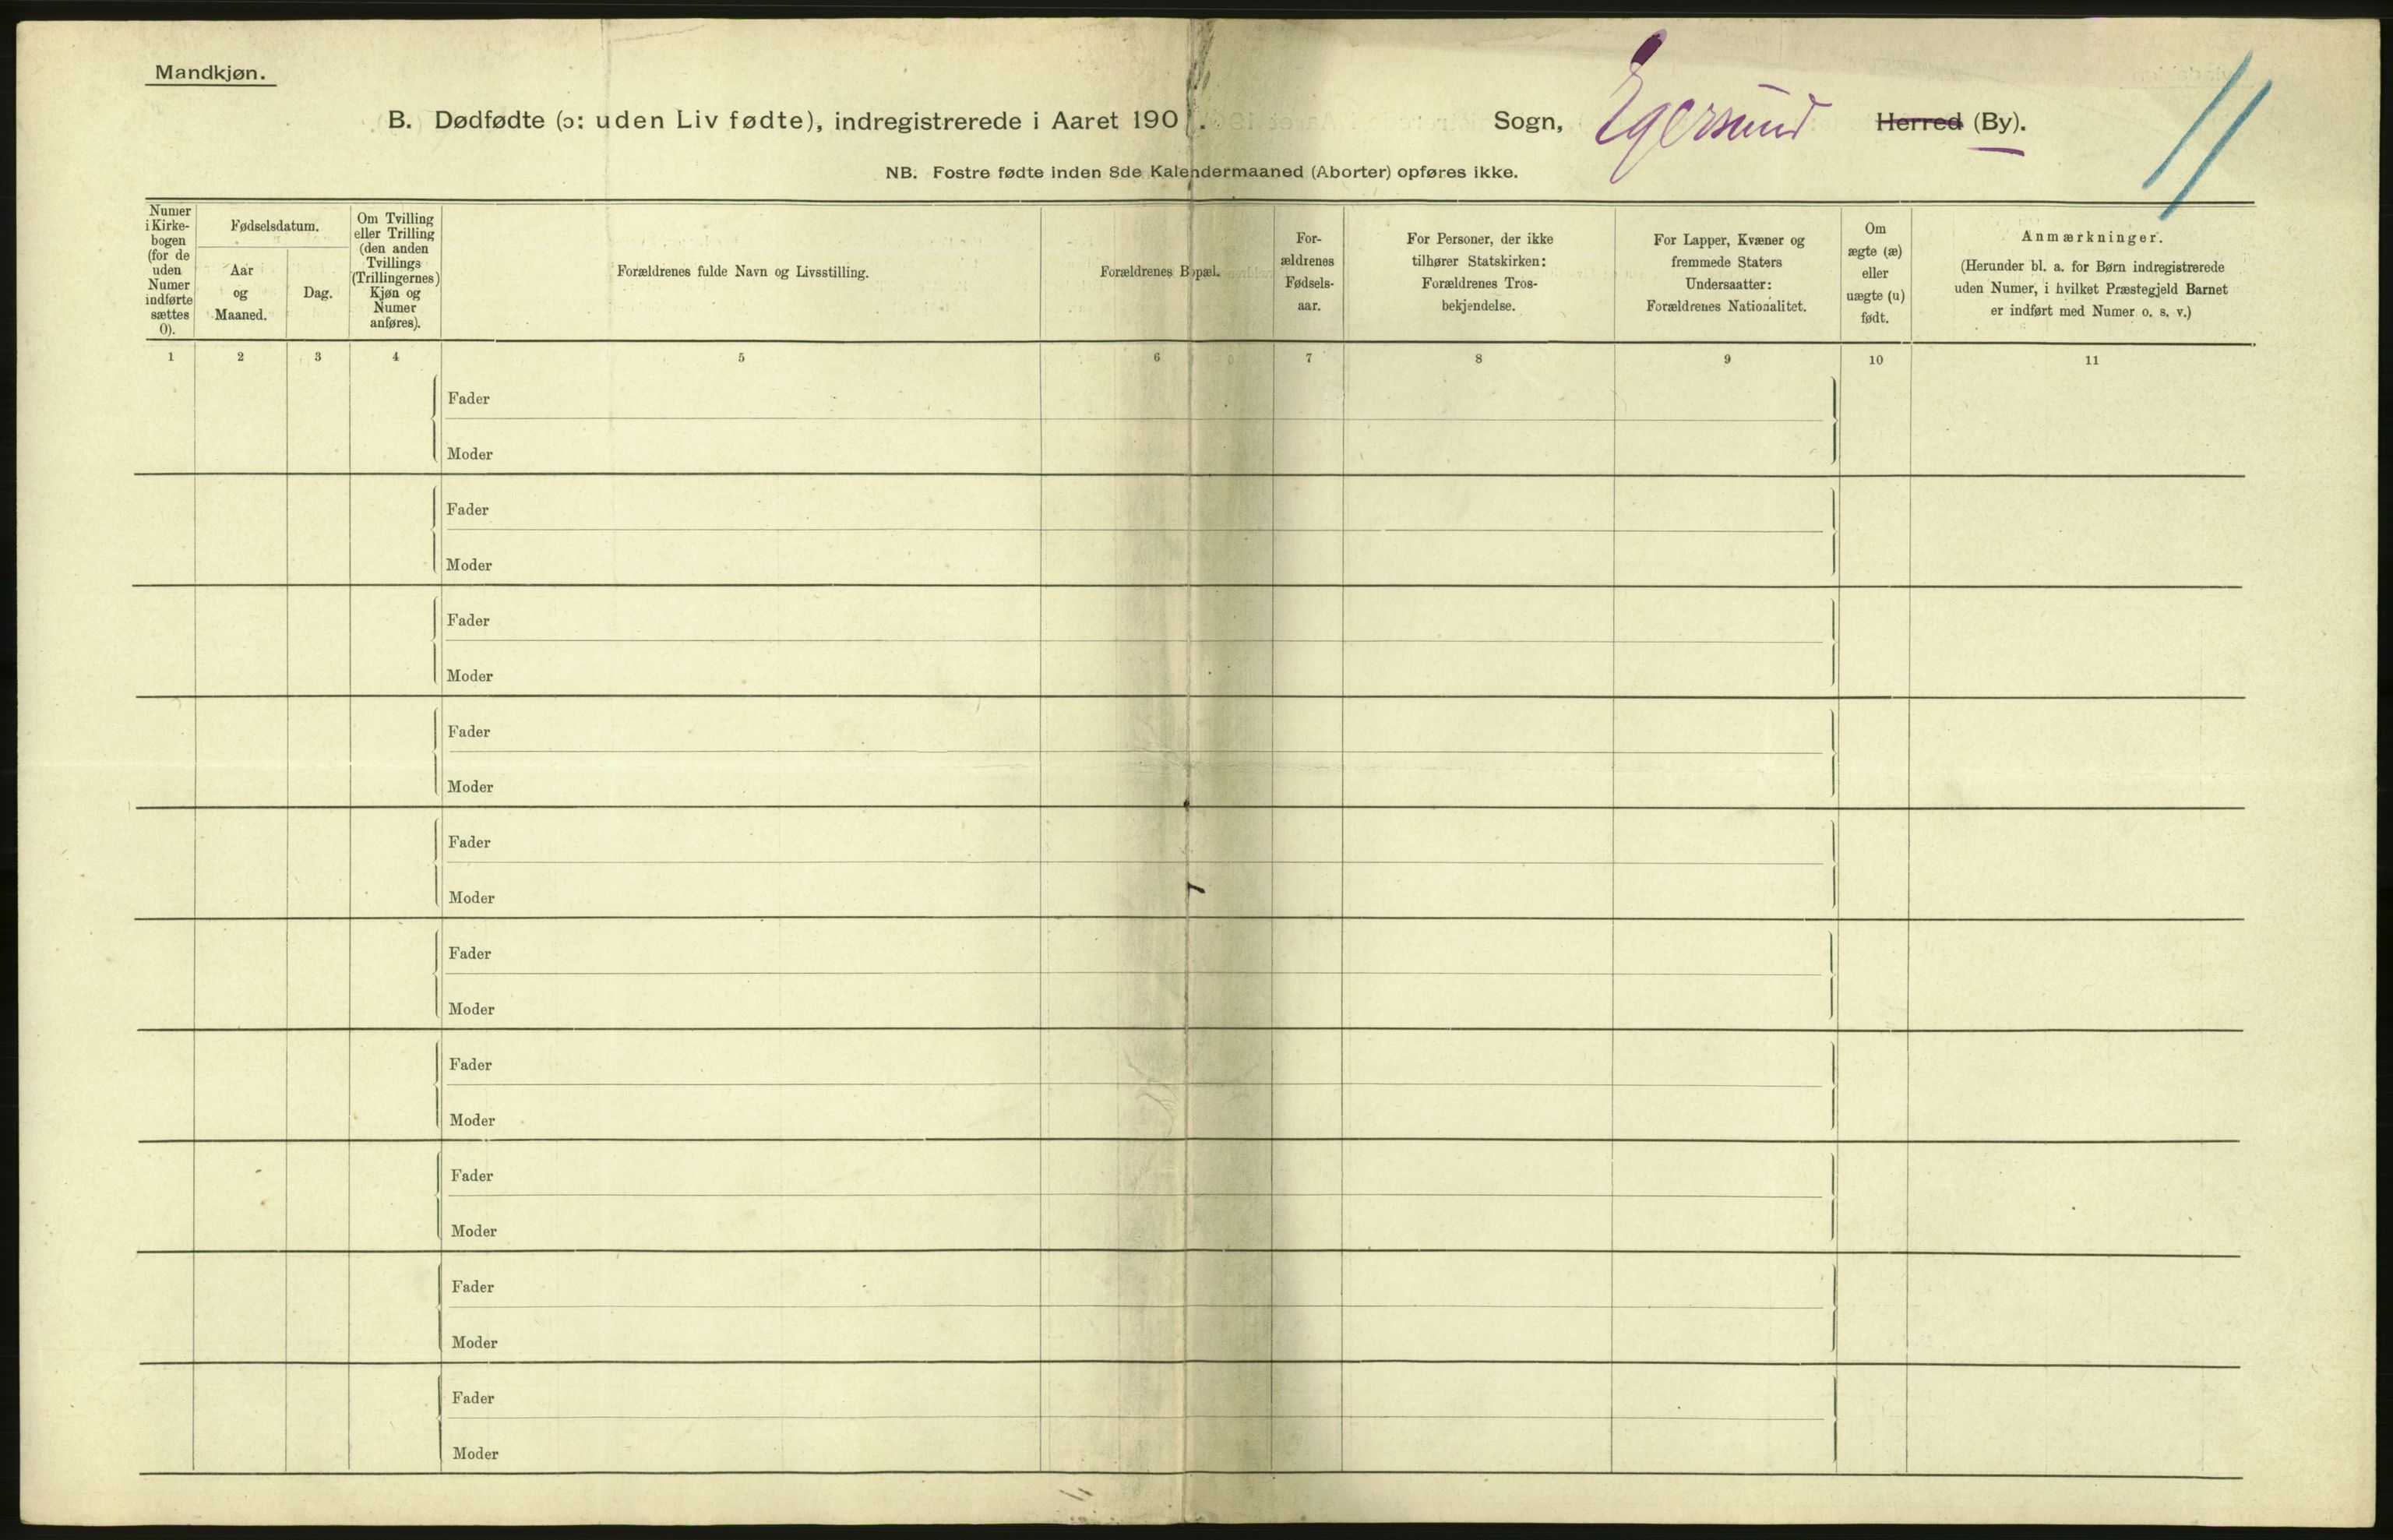 Mandkjøn.
B. Dødfødte (ɔ: uden Liv fødte), indregistrerede i Aaret 190 . Sogn, Egersund Herred (By).
NB. Fostre fødte inden 8de Kalendermaaned (Aborter) opføres ikke.
Numer
i Kirke-
bogen
(for de
uden
Numer
indførte
sættes
0).
Fødselsdatum.
Aar
og
Maaned.
Dag.
Om Tvilling
eller Trilling
(den anden
Tvillings
(Trillingernes)
Kjøn og
Numer
anføres).
Forældrenes fulde Navn og Livsstilling.
Forældrenes Bopæl.
For-
ældrenes
Fødsels-
aar.
For Personer, der ikke
tilhører Statskirken:
Forældrenes Tros-
bekjendelse.
For Lapper, Kvæner og
fremmede Staters
Undersaatter:
Forældrenes Nationalitet.
Om
ægte (æ)
eller
uægte (u)
født.
Anmærkninger.
(Herunder bl. a. for Børn indregistrerede
uden Numer, i hvilket Præstegjeld Barnet
er indført med Numer o. s. v.)
1 2 3 4 5 6 7 8 9 10 11
Fader
Moder
Fader
Moder
Fader
Moder
Fader
Moder
Fader
Moder
Fader
Moder
Fader
Moder
Fader
Moder
Fader
Moder
Fader
Moder